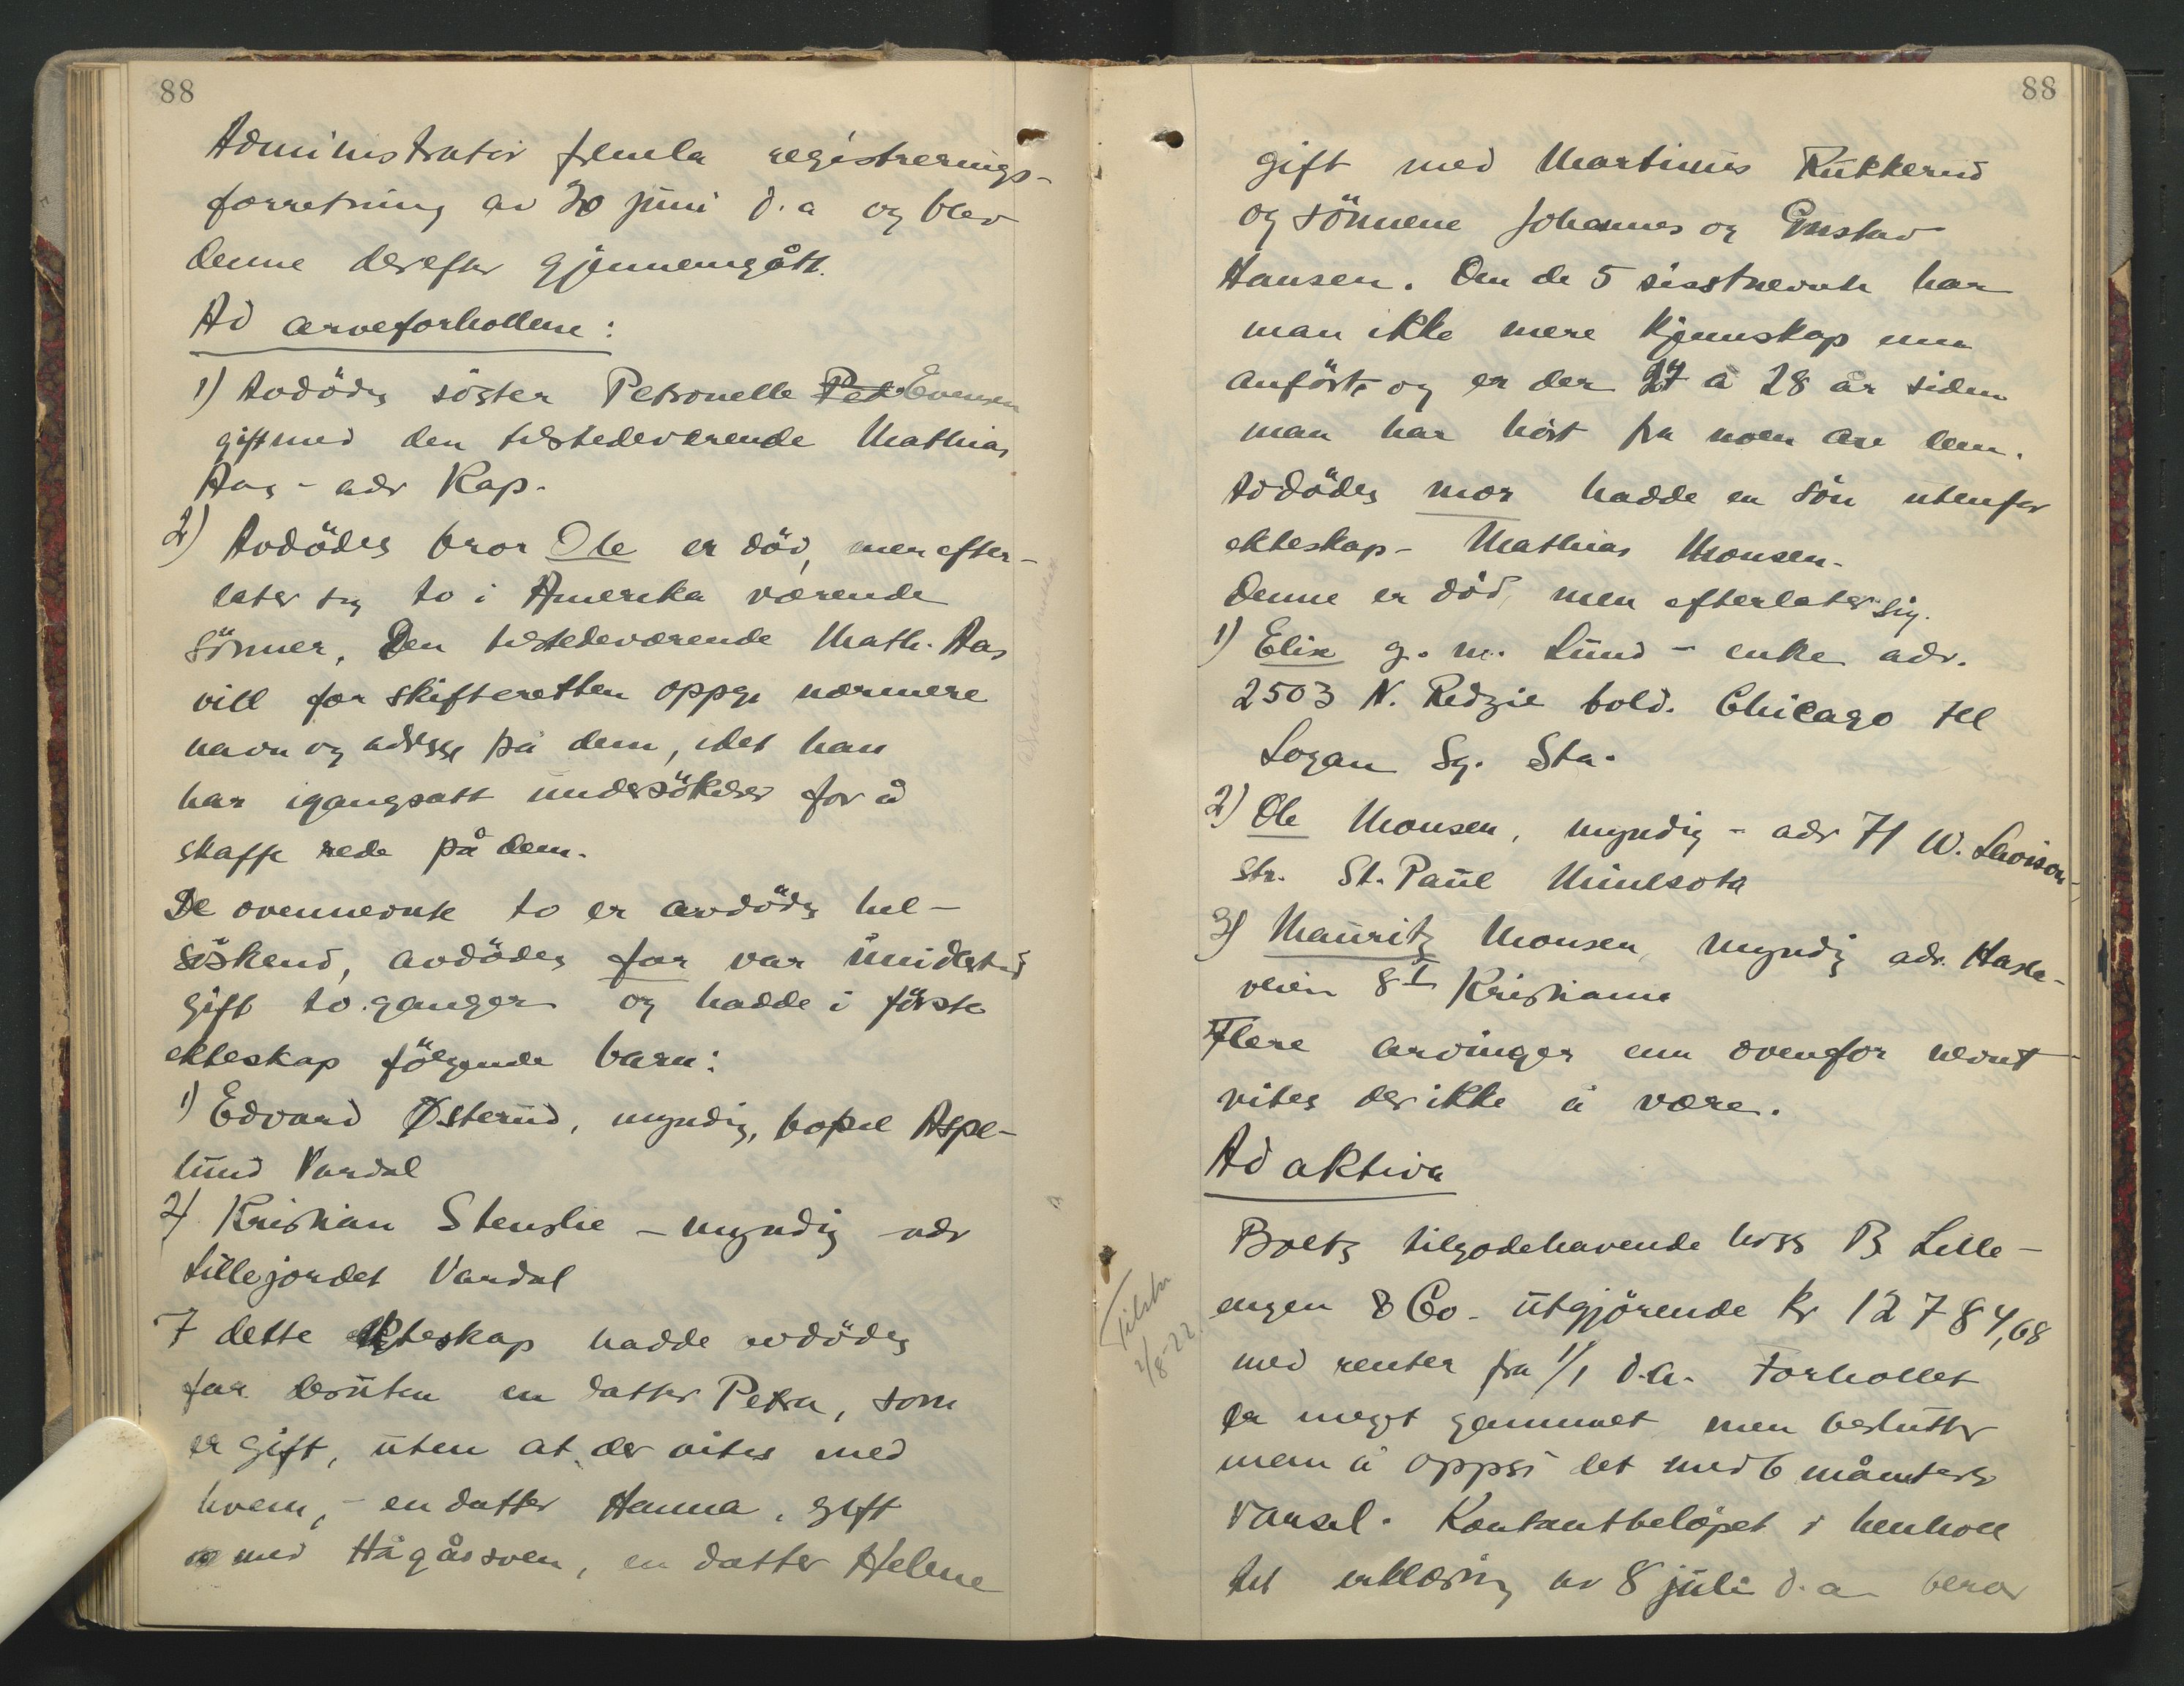 88
Administrator fremla registrerings-
forretning av 30 juni d.a og blev
denne derefter gjennemgått.
Ad arveforhollene:
1) Avdödes söster Petronelle Pet Evensen
gift med den tilstedeværende Mathias
Aas - adr Kap.
2) Avdödes bror Ole er död, men efter-
later sig to i Amerika værende
sönner. Den tilstedeværende Math. Aas
vill for skifteretten oppgi nærmere
navn og adresse på dem, idet han
har igangsatt undersökelser for å
skaffe rede på dem.
De ovennevnte to er avdödes hel-
söskend, avdödes far var imidlertid
gift to ganger og hadde i förste
ekteskap fölgende barn:
1) Edvard Østerud, myndig, bopel Aspe-
lund Vardal
2) Kristian Stenslie - myndig adr
Lillejordet Vardal
I dette ekteskap hadde avdödes
far desuten en datter Petra, som
er gift, uten at der vites med
hvem, - en datter Hanna, gift
med Hågåssven, en datter Helene
88
gift med Martinus Rukkerud
og sönnene Johannes og Gustav
Hansen. Om de 5 sisstnevnte har
man ikke mere kjennskap enn
anfört og er der 27 à 28 år siden
man har hört fra noen av dem.
Avdödes mor hadde en sön utenfor
ekteskap - Mathias Monsen.
Denne er död, men efterlater sig.
1) Elise g. m. Lund - enke adr.
2503 N. Kedzie bold. Chicago Ill
Logan Sq. Sta.
2) Ole Monsen, myndig - adr 71 W.
Str. St. Paul Minesota
3) Mauritz Monsen, myndig adr. Hasle-
veien 8 I Kristiania
Flere arvinger enn ovenfor nevnt
vites der ikke å være.
Ad aktiva
Boets tilgodehavende hoss B Lille-
engen & Co. utgjörende kr 12784,68
med renter fra 1/1 d.a. Forhollet
er meget gammelt men beslutter
man å oppsi det med 6 måneders
varsel. Kontantbelöpet i henholl
til erklæring av 8 juli d.a beror
2/8-22